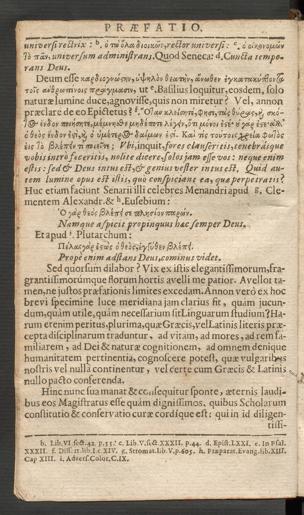 PRÆFATIO.
universi rectrix: b. ὁ τῶ ὅλω διοικῶν, rector universi: c. ὁ οἰκονομῶν
τὸ πᾶν, universum administrans. Quod Senecæ: d. Cuncta tempo-
rans Deus.
Deum esse καρδιογνώστην, ὑψηλὸν θεατὴν, ἄνωθεν
τοῖς ἀνθρωπίνοις πράγμασιν, ut e. Basilius loquitur, eosdem, solo
naturæ lumine duce, agnovisse, quis non miretur? Vel, annon
præclare de eo Epictetus f. Ὅταν κλείσητε τὰς θύρας, καὶ σκό-
τος ἔνδον ποιήσητε, μέμνησθε μηδέποτε λέγειν, ὅτι μόνοι ἐστὲ· οὐ γὰρ ἐστὲ. ἀλλ'
ὁ θεὸς ἔνδον ἐστὶ, κὶ ὁ ὑμέτερος δαίμων ἐστί. Καὶ τίς τούτοις χρεία φωτὸς
εἰς τὸ βλέπειν τί ποιεῖτε; Ubi, inquit, fores clauseritis, tenebrásque
vobis intro feceritis, nolite dicere, solos jam esse vos: neque enim
estis: sed & Deus intus est, & genius vester intus est. Quid au-
tem lumine opus est istis, quo conspiciane ea, quæ perpetratis?
Huc etiam faciunt Senarii illi celebres Menandri apud g. Cle-
mentem Alexandr. & h. Eusebium:
Ὁ γὰρ θεὸς βλέπει σε πλησίον παρών.
Namque aspicit propinquus hac semper Deus.
Et apud i. Plutarchum:
Πέλας γὰρ ἑστὼς ὁ θεὸς, ἐγγύθεν βλέπει.
Prope enim adstans Deus, cominus videt.
Sed quorsum dilabor? Vix ex istis elegantissimorum, fra-
grantissimorúmque florum hortis avelli me patior. Avellor ta-
men, ne justos præfationis limites excedam. Annon verò ex hoc
brevi specimine luce meridiana jam clarius fit, quàm jucun-
dum, quàm utile, quàm necessarium sit Linguarum studium? Ha-
rum etenim peritus, plurima, quæ Græcis, vel Latinis literis præ-
cepta disciplinarum traduntur, ad vitam, ad mores, ad rem fa-
miliarem, ad Dei & naturæ cognitionem, ad omnem denique
humanitatem pertinentia, cognoscere potest, quæ vulgaribus
nostris vel nulla continentur, vel certe cum Græcis & Latinis
nullo pacto conferenda.
Hinc nunc sua manat & consequitur sponte, æternis laudi-
bus eos Magistratus esse quàm dignissimos, quibus Scholarum
constitutio & conservatio curæ cordíque est: qui in id diligen-
tissi-
b. Lib.VI sect.42. p.55. c. Lib.V.sect.XXXII. p.44. d. Epist.LXXI. e. In Psal.
XXXII. f. Diss.